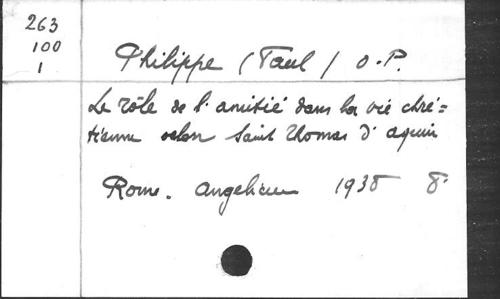 263
100
1
Philippe (Paul) O.P.
Le rôle de l'amitié dans la vie chré=
tienne selon Saint Thomas d'Aquin
Rome. Angelicum 1938 8°